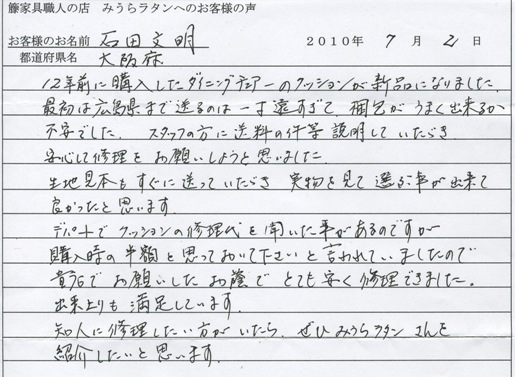 籐家具職人の店　みうらラタンへのお客様の声
お客様のお名前　石田文明　2010年　7月　2日
都道府県名　大阪府
12年前に購入したダイニングチェアーのクッションが新品になりました。
最初は広島県まで送るのは一寸遠すぎて、梱包がうまく出来るか
不安でした。スタッフの方に送料の件等説明していただき
安心して修理をお願いしようと思いました。
生地見本もすぐに送っていただき実物を見て選ぶ事が出来て
良かったと思います。
デパートでクッションの修理代を聞いた事があるのですが
購入時の半額と思っておいて下さいと言われていましたので
貴店でお願いしたお蔭でとても安く修理できました。
出来上りも満足しています。
知人に修理したい方がいたら、ぜひみうらラタンさんを
紹介したいと思います。